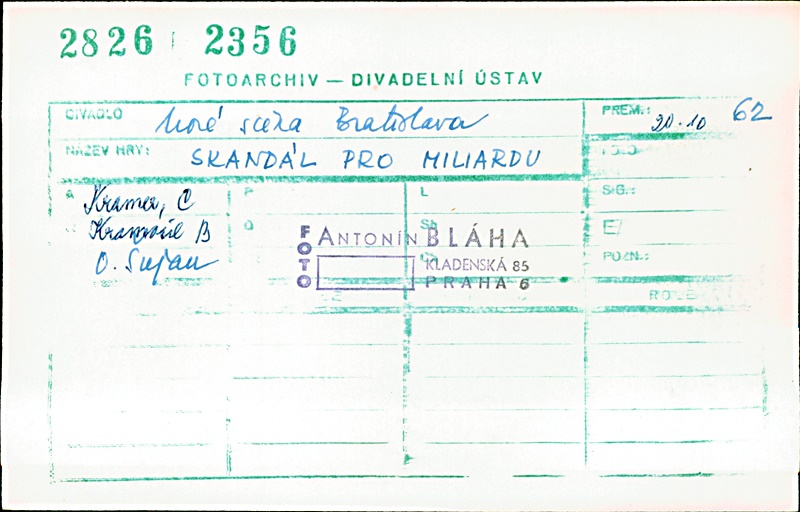 2826 2356
FOTOARCHIV — DIVADELNÍ ÚSTAV
DIVADLO Nové scéna Bratislava
PREM.: 20.10 62
NÁZEV HRY: SKANDÁL PRO MILIARDU
FOTO
A Kramer, C
P
L
SIG.:
B
O. Sujan
O
E/
POZN.:
FOTO ANTONÍN BLÁHA
KLADENSKÁ 85
PRAHA 6
ROLE